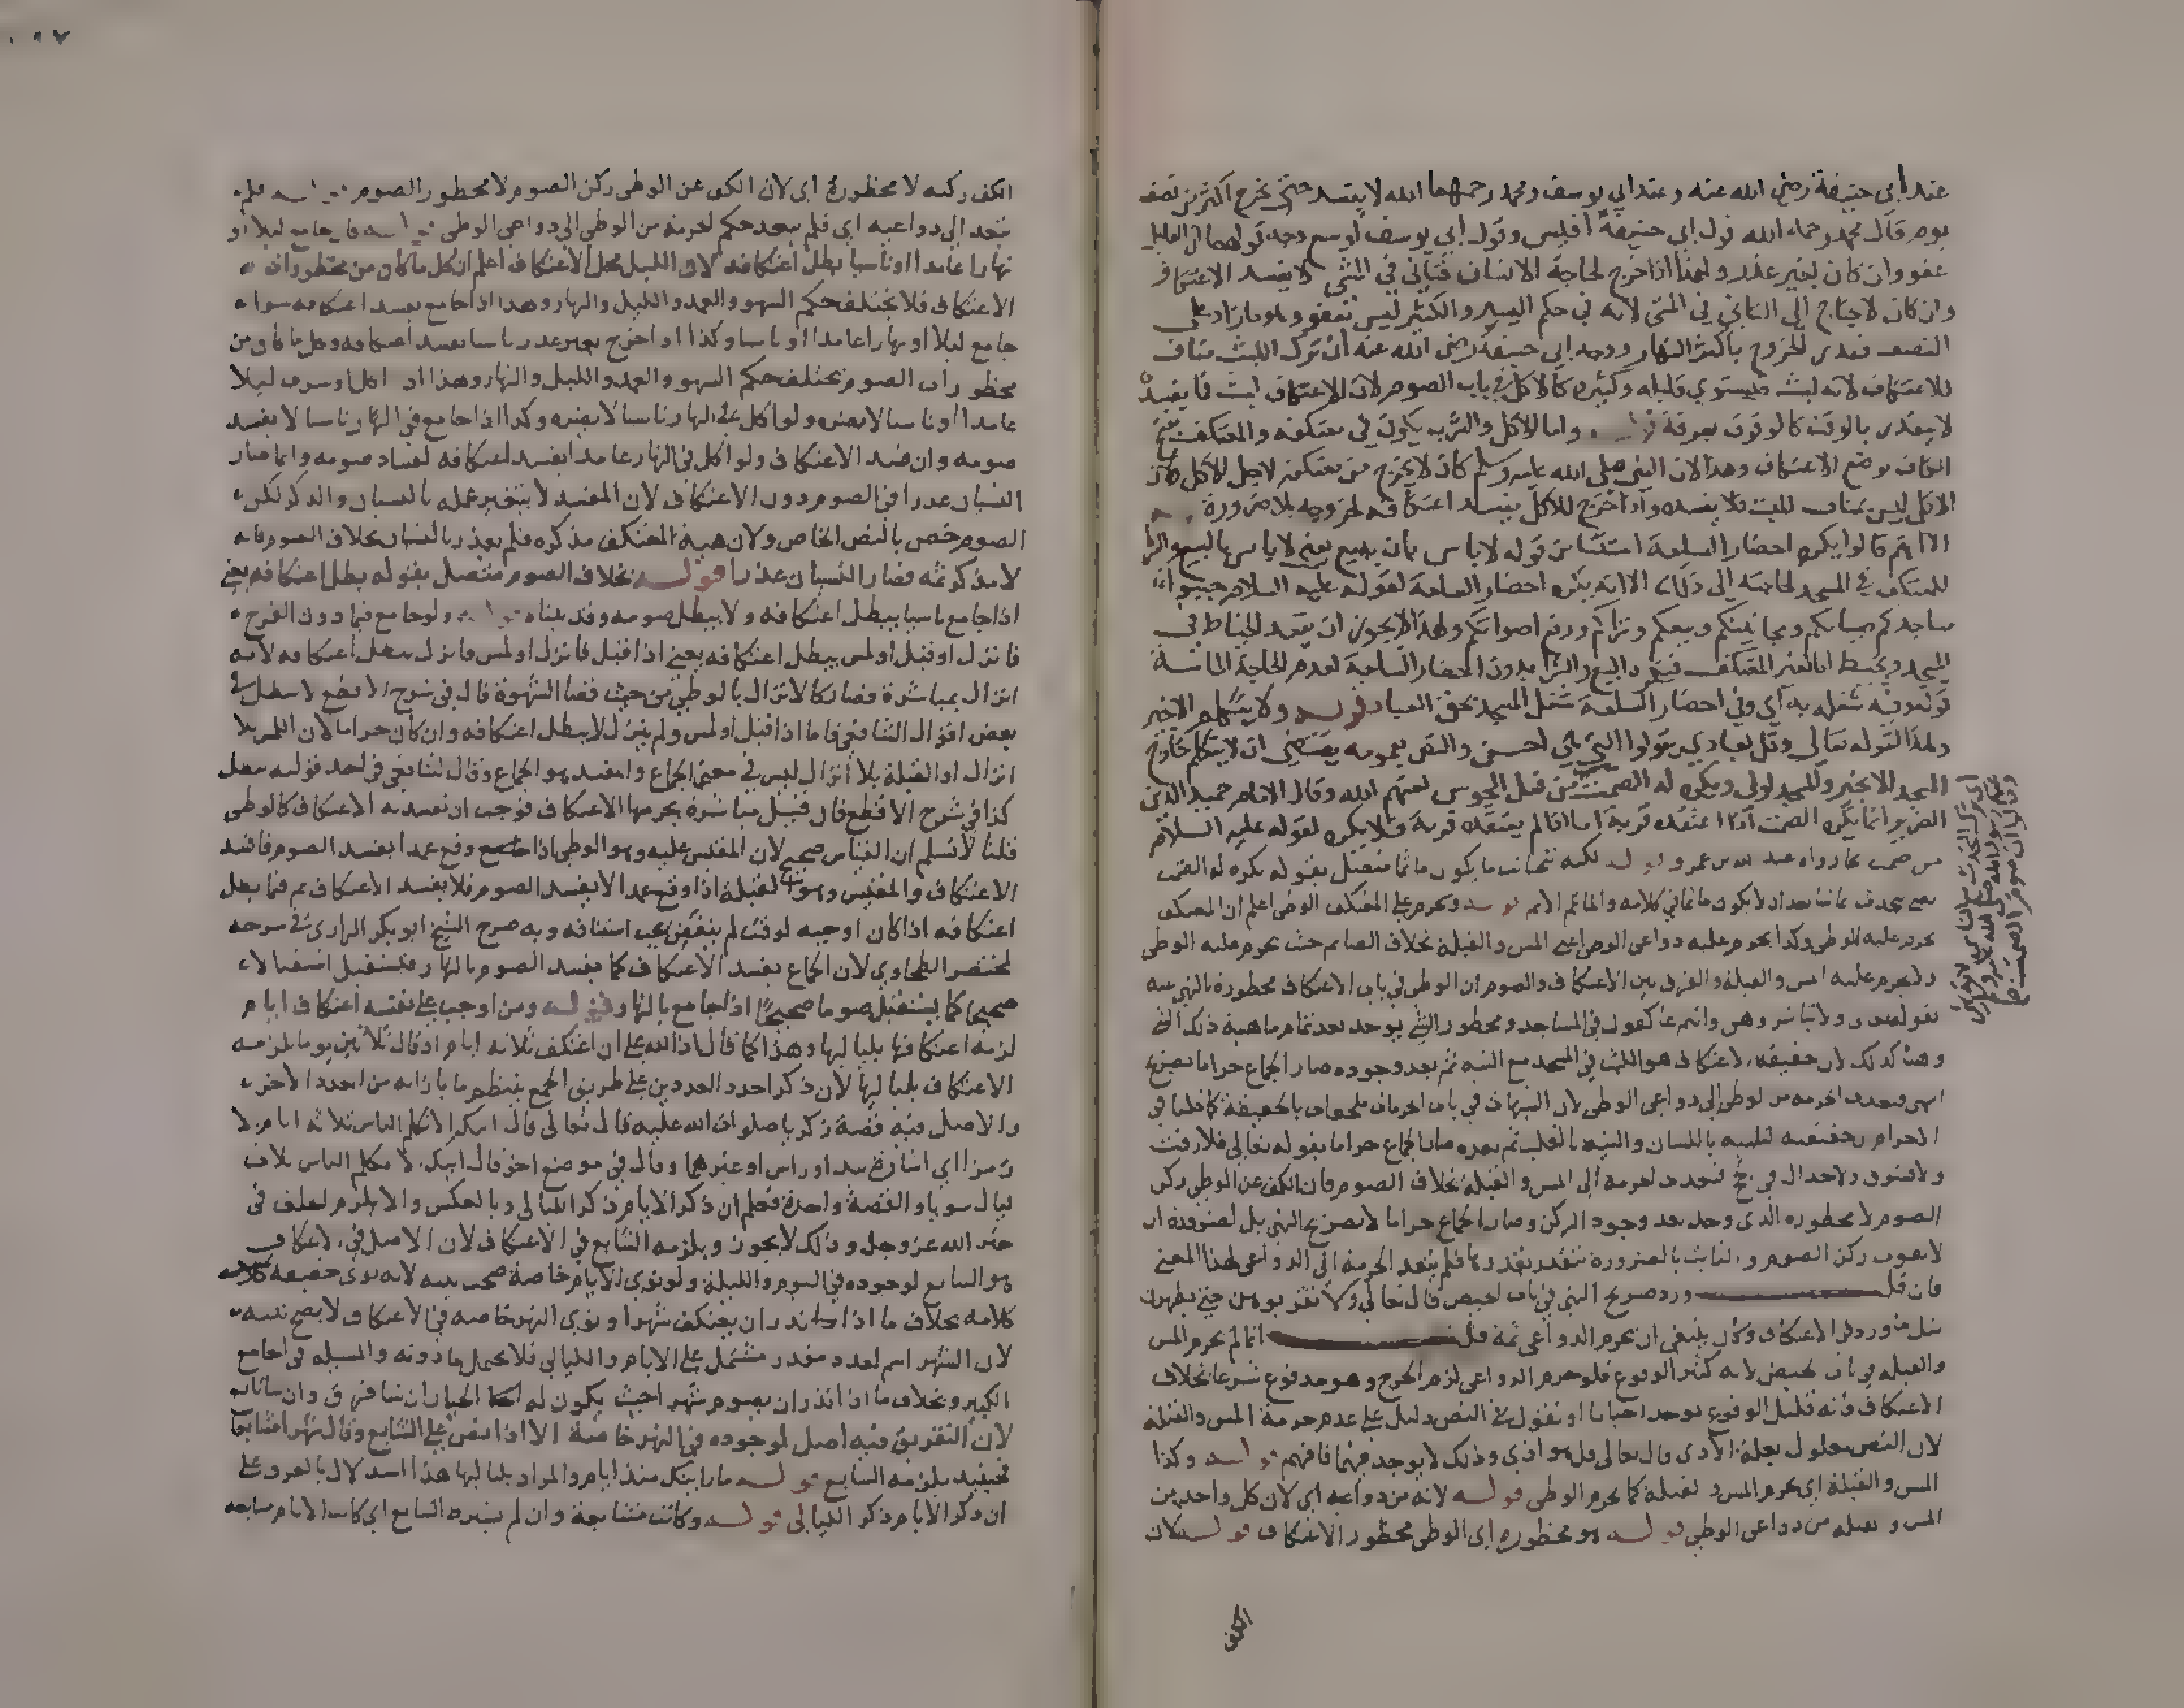 عند أبي حنيفة رضي الله عنه وعند أبي يوسف ومحمد رحمهما الله لا يفسد حتى يخرج أكثر من نصف
يوم قال محمد رحمه الله قول أبي حنيفة أقيس وقول أبي يوسف أوسع وجه قولهما أن القليل
عفو وإن كان لغير عذر ولهذا إذا خرج لحاجة الإنسان فتأنى في المشي لا يفسد الاعتكاف
وإن كان لا يحتاج إلى التأني في المشي لأنه في حكم اليسير والكثير ليس بعفو وهو ما زاد على
النصف فقدر الخروج بأكثر النهار ووجه أبي حنيفة رضي الله عنه أن ترك اللبث مناف
للاعتكاف لأنه لبث فيستوي قليله وكثيره كالأكل في باب الصوم لأن الاعتكاف لبث
لا يتقدر بالوقت كالوقوف بعرفة وأما الأكل والشرب يكون في معتكفه والمعتكف
موضع الاعتكاف وهذا لأن النبي صلى الله عليه وسلم كان لا يخرج من معتكفه لأجل الأكل
الأكل ليس بمناف للبث فلا يفسده وإذا خرج للأكل يفسد اعتكافه لخروجه بلا ضرورة
إلا أنهم قالوا يكره إحضار السلعة استثناء من قوله لا بأس بأن يبيع يعني لا بأس بالبيع والشراء
للمعتكف في المسجد لحاجته إلى ذلك إلا أنه يكره إحضار السلعة لقوله عليه السلام جنبوا
مساجدكم صبيانكم ومجانينكم وبيعكم وشراكم ورفع أصواتكم ولهذا لا يجوز أن يقعد الخياط في
المسجد ويخيط أما لغير المعتكف البيع والشراء بدون إحضار السلعة لعدم الحاجة الماسة
قوله وفيه شغله به أي وفي إحضار السلعة شغل المسجد بحق العباد قوله ولا يتكلم إلا بخير
وهذا لقوله تعالى وقل لعبادي يقولوا التي هي أحسن والنص بعمومه يقتضي أن لا يتكلم خارج
المسجد إلا بخير وللمسجد أولى ويكره له الصمت من فعل المجوس لعنهم الله وقال الإمام حميد الدين
الضرير إنما يكره الصمت إذا اعتقده قربة أما إذا لم يعتقده قربة فلا يكره لقوله عليه السلام
من صمت نجا رواه عبد الله بن عمرو قوله لكنه يتجانب ما يكون مأثما متصل بقوله يكره له الصمت
يعني يتحدث بما شاء بعد أن لا يكون مأثما في كلامه والمأثم الإثم قوله ويحرم على المعتكف الوطئ اعلم أن المعتكف
يحرم عليه الوطئ وكذا يحرم عليه دواعي الوطئ أعني المس والقبلة بخلاف الصائم حيث يحرم عليه الوطئ
ولا يحرم عليه المس والقبلة والفرق بين الاعتكاف والصوم أن الوطئ في باب الاعتكاف محظوره بالنهي عنه
بقوله ولا تباشروهن وأنتم عاكفون في المساجد ومحظور الشيء يوجد بعد تمام ماهية ذلك الشيء
وهنا كذلك لأن حقيقة الاعتكاف هو اللبث في المسجد مع النية ثم بعد وجوده صار الجماع حراما بصريح
النهي فتعدت الحرمة من الوطئ إلى دواعي الوطئ لأن الشبهات في باب الحرمات ملحقات بالحقيقة كما قلنا في
الإحرام حقيقته التلبية باللسان والنية بالقلب ثم بعده صار الجماع حراما بقوله تعالى فلا رفث
ولا فسوق ولا جدال في الحج فتعدت الحرمة إلى المس والقبلة بخلاف الصوم فإن الكف عن الوطئ ركن
الصوم لا محظوره الذي وجد بعد وجود الركن وصار الجماع حراما لا بصريح النهي بل لضرورة أن
لا يفوت ركن الصوم والثابت بالضرورة يتقدر بقدرها فلم يتعد الحرمة إلى الدواعي لهذا المعنى
فإن قلت ورد صريح النهي في باب الحيض قال تعالى ولا تقربوهن حتى يطهرن
مثل ما ورد في الاعتكاف وكان ينبغي أن يحرم الدواعي ثمة قلت إنما لم يحرم المس
والقبلة في باب الحيض لأنه كثير الوقوع فلو حرم الدواعي لزم الحرج وهو مدفوع شرعا بخلاف
الاعتكاف فإنه قليل الوقوع يوجد أحيانا أو نقول النص دليل على عدم حرمة المس والقبلة
لأن النص معلول بعلة الأذى قال تعالى قل هو أذى وذلك لا يوجد فيهما فافهم قوله وكذا
المس والقبلة أي يحرم المس والقبلة كما يحرم الوطئ قوله لأنه من دواعيه أي لأن كل واحد من
المس والقبلة من دواعي الوطئ قوله هو محظوره أي الوطئ محظور الاعتكاف قوله لأن
الكف
الكف ركنه لا محظوره أي لأن الكف عن الوطئ ركن الصوم لا محظور الصوم قوله فلم
يتعد إلى دواعيه أي فلم يتعد حكم الحرمة من الوطئ إلى دواعي الوطئ قوله فإن جامع ليلا أو
نهارا عامدا أو ناسيا بطل اعتكافه لأن الليل محل الاعتكاف اعلم أن كل ما كان من محظورات
الاعتكاف فلا يختلف حكم السهو والعمد والليل والنهار وهذا إذا جامع يفسد اعتكافه سواء
جامع ليلا أو نهارا عامدا أو ناسيا وكذا إذا خرج بغير عذر ناسيا يفسد اعتكافه وكل ما كان من
محظورات الصوم يختلف حكم السهو والعمد والليل والنهار وهذا إذا أكل أو شرب ليلا
عامدا أو ناسيا لا يضره ولو أكل في النهار ناسيا لا يضره وكذا إذا جامع في النهار ناسيا لا يفسد
صومه وإن فسد الاعتكاف ولو أكل في النهار عامدا يفسد اعتكافه لفساد صومه وإنما صار
النسيان عذرا في الصوم دون الاعتكاف لأن المفسد لا يتغير عمله بالنسيان والذكر لكن
الصوم خص بالنص الخاص ولأن هيئة المعتكف مذكرة فلم يعذر بالنسيان بخلاف الصوم فإنه
لا مذكر ثمة فصار النسيان عذرا قوله بخلاف الصوم متصل بقوله بطل اعتكافه يعني
إذا جامع ناسيا يبطل اعتكافه ولا يبطل صومه وقد بيناه قوله ولو جامع فيما دون الفرج
فأنزل أو قبل أو لمس يبطل اعتكافه يعني إذا قبل فأنزل أو لمس فأنزل يبطل اعتكافه لأنه
إنزال بمباشرة فصار كالإنزال بالوطئ من حيث قضاء الشهوة قال في شرح الأقطع لا يبطل في
بعض أقوال الشافعي فأما إذا قبل أو لمس ولم ينزل لا يبطل اعتكافه وإن كان حراما لأن اللمس بلا
إنزال أو القبلة بلا إنزال ليس في معنى الجماع والمفسد هو الجماع وقال الشافعي في أحد قوليه يبطل
كذا في شرح الأقطع قال قبل مباشرة يحرمها الاعتكاف فوجب أن يفسد به الاعتكاف كالوطئ
قلنا لا نسلم أن القياس صحيح لأن المقيس عليه وهو الوطئ إذا وقع عمدا يفسد الصوم فأفسد
الاعتكاف والمقيس وهو القبلة إذا وقع عمدا لا يفسد الصوم فلا يفسد الاعتكاف ثم فيما يبطل
اعتكافه إذا كان أوجبه لوقت لم ينقض يجب استئنافه وبه صرح الشيخ أبو بكر الرازي في شرحه
لمختصر الطحاوي لأن الجماع يفسد الاعتكاف كما يفسد الصوم بالنهار فيستقبل استقبالا
صحيحا كما يستقبل صوما صحيحا إذا جامع بالنهار قوله ومن أوجب على نفسه اعتكاف أيام
لزمه اعتكافها بلياليها وهذا كما قال لله علي أن أعتكف ثلاثة أيام أو قال ثلاثين يوما لزمه
الاعتكاف بلياليها لأن ذكر أحد العددين على طريق الجمع ينتظم ما بإزائه من العدد الآخر
والأصل فيه قصة زكريا صلوات الله عليه قال تعالى قال آيتك ألا تكلم الناس ثلاثة أيام إلا
رمزا أي إشارة بيد أو رأس أو غيرهما وقال في موضع آخر قال آيتك ألا تكلم الناس ثلاث
ليال سويا والقصة واحدة فعلم أن ذكر الأيام ذكر الليالي وبالعكس وإلا لزم الخلف في
خبر الله عز وجل وذلك لا يجوز ويلزمه التتابع في الاعتكاف لأن الأصل في الاعتكاف
هو التتابع لوجوده في اليوم والليلة ولو نوى الأيام خاصة صحت نيته لأنه نوى حقيقة كلامه
كلامه بخلاف ما إذا نذر أن يعتكف شهرا ونوى النهر خاصة في الاعتكاف لا يصح نيته
لأن الشهر اسم لعدد مقدر مشتمل على الأيام والليالي فلا يحتمل ما دونه والمسألة في الجامع
الكبير وبخلاف ما إذا نذر أن يصوم شهرا حيث يكون له الخيار إن شاء فرق وإن شاء تابع
لأن التفريق فيه أصل لوجوده في النهر خاصة إلا إذا نص على التتابع وقال شهرا متتابعا
فحينئذ يلزمه التتابع قوله ما رأيتك منذ أيام والمراد بلياليها هذا استدلال بالعرف على
أن ذكر الأيام ذكر الليالي قوله وكانت متتابعة وإن لم يشترط التتابع أي كانت الأيام متتابعة